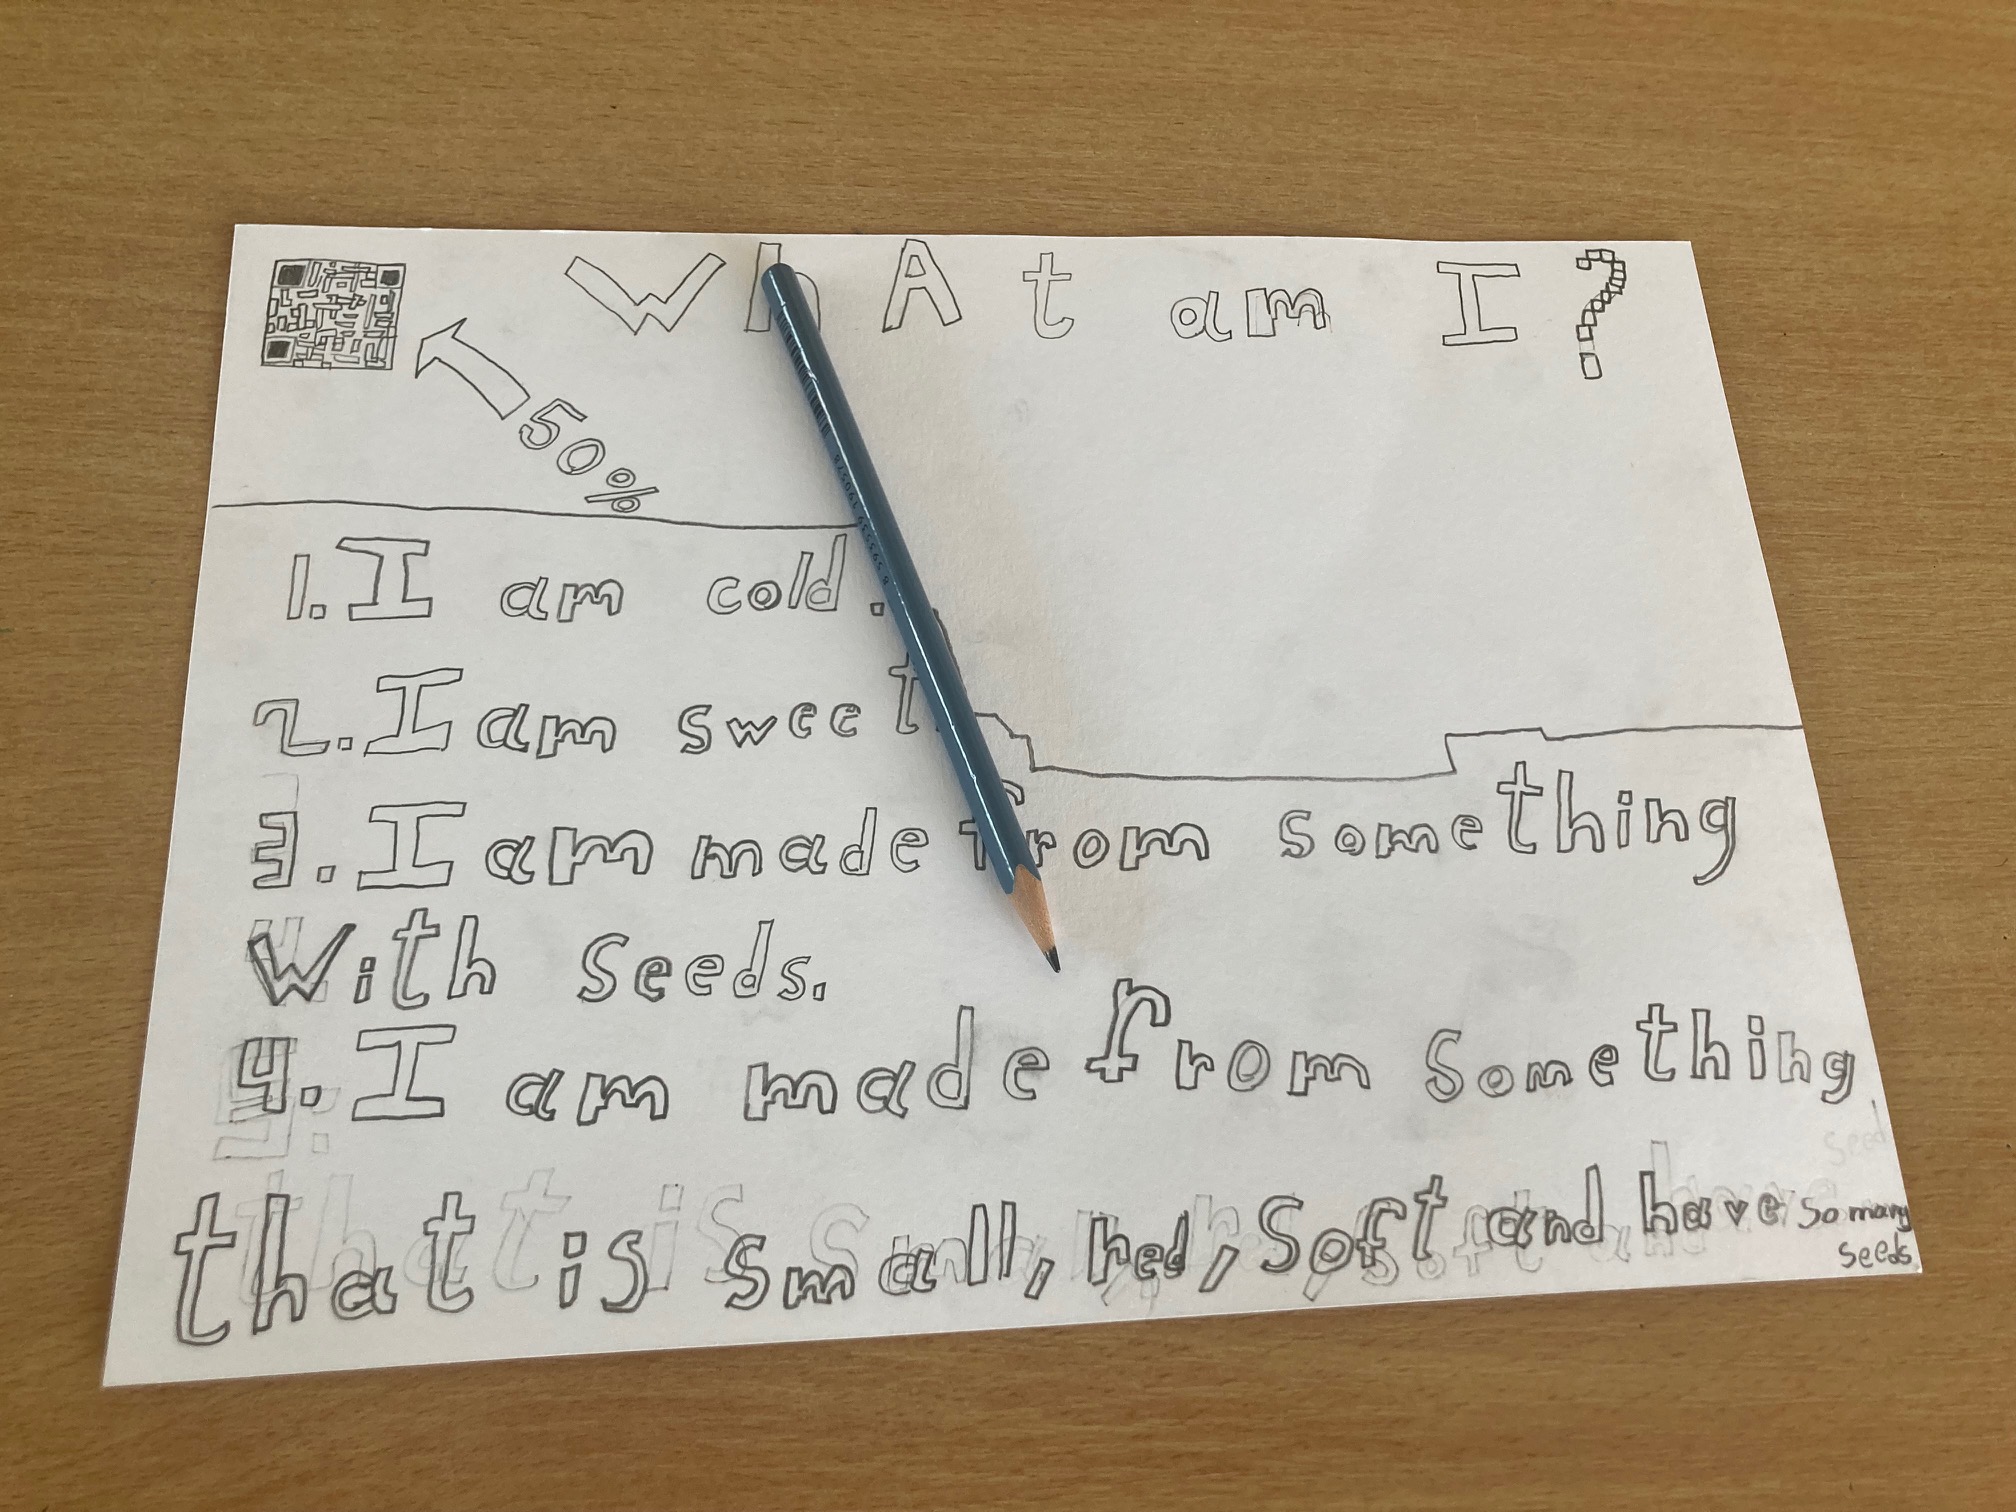 WhAt am I?
50%
1. I am cold.
2. I am sweet
3. I am made from something
With seeds.
4. I am made from something
that is small, red, soft and have so many
seeds